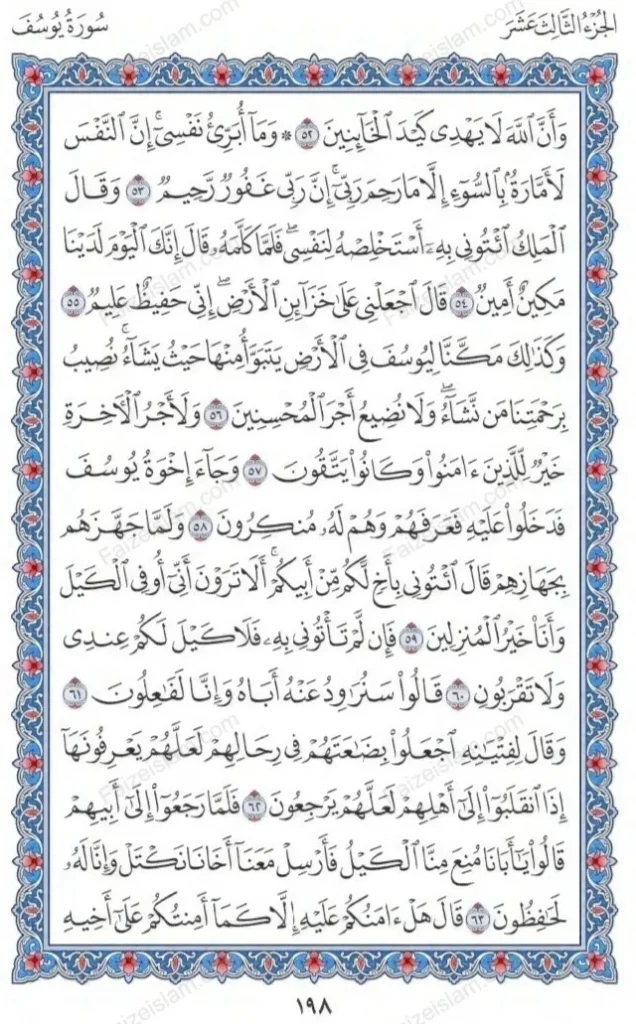 الجزء الثالث عشر
سورة يوسف
وَأَنَّ ٱللَّهَ لَا يَهْدِى كَيْدَ ٱلْخَآئِنِينَ ٥٢ * وَمَآ أُبَرِّئُ نَفْسِىٓ ۚ إِنَّ ٱلنَّفْسَ
لَأَمَّارَةٌۢ بِٱلسُّوٓءِ إِلَّا مَا رَحِمَ رَبِّىٓ ۚ إِنَّ رَبِّى غَفُورٌ رَّحِيمٌ ٥٣ وَقَالَ
ٱلْمَلِكُ ٱئْتُونِى بِهِۦٓ أَسْتَخْلِصْهُ لِنَفْسِى ۖ فَلَمَّا كَلَّمَهُۥ قَالَ إِنَّكَ ٱلْيَوْمَ لَدَيْنَا
مَكِينٌ أَمِينٌ ٥٤ قَالَ ٱجْعَلْنِى عَلَىٰ خَزَآئِنِ ٱلْأَرْضِ ۖ إِنِّى حَفِيظٌ عَلِيمٌ ٥٥
وَكَذَٰلِكَ مَكَّنَّا لِيُوسُفَ فِى ٱلْأَرْضِ يَتَبَوَّأُ مِنْهَا حَيْثُ يَشَآءُ ۚ نُصِيبُ
بِرَحْمَتِنَا مَن نَّشَآءُ ۖ وَلَا نُضِيعُ أَجْرَ ٱلْمُحْسِنِينَ ٥٦ وَلَأَجْرُ ٱلْـَٔاخِرَةِ
خَيْرٌ لِّلَّذِينَ ءَامَنُوا۟ وَكَانُوا۟ يَتَّقُونَ ٥٧ وَجَآءَ إِخْوَةُ يُوسُفَ
فَدَخَلُوا۟ عَلَيْهِ فَعَرَفَهُمْ وَهُمْ لَهُۥ مُنكِرُونَ ٥٨ وَلَمَّا جَهَّزَهُم
بِجَهَازِهِمْ قَالَ ٱئْتُونِى بِأَخٍ لَّكُم مِّنْ أَبِيكُمْ ۚ أَلَا تَرَوْنَ أَنِّىٓ أُوفِى ٱلْكَيْلَ
وَأَنَا۠ خَيْرُ ٱلْمُنزِلِينَ ٥٩ فَإِن لَّمْ تَأْتُونِى بِهِۦ فَلَا كَيْلَ لَكُمْ عِندِى
وَلَا تَقْرَبُونِ ٦٠ قَالُوا۟ سَنُرَٰوِدُ عَنْهُ أَبَاهُ وَإِنَّا لَفَٰعِلُونَ ٦١
وَقَالَ لِفِتْيَٰنِهِ ٱجْعَلُوا۟ بِضَٰعَتَهُمْ فِى رِحَالِهِمْ لَعَلَّهُمْ يَعْرِفُونَهَآ
إِذَا ٱنقَلَبُوٓا۟ إِلَىٰٓ أَهْلِهِمْ لَعَلَّهُمْ يَرْجِعُونَ ٦٢ فَلَمَّا رَجَعُوٓا۟ إِلَىٰٓ أَبِيهِمْ
قَالُوا۟ يَٰٓأَبَانَا مُنِعَ مِنَّا ٱلْكَيْلُ فَأَرْسِلْ مَعَنَآ أَخَانَا نَكْتَلْ وَإِنَّا لَهُۥ
لَحَٰفِظُونَ ٦٣ قَالَ هَلْ ءَامَنُكُمْ عَلَيْهِ إِلَّا كَمَآ أَمِنتُكُمْ عَلَىٰٓ أَخِيهِ
١٩٨
Faizeislam.com